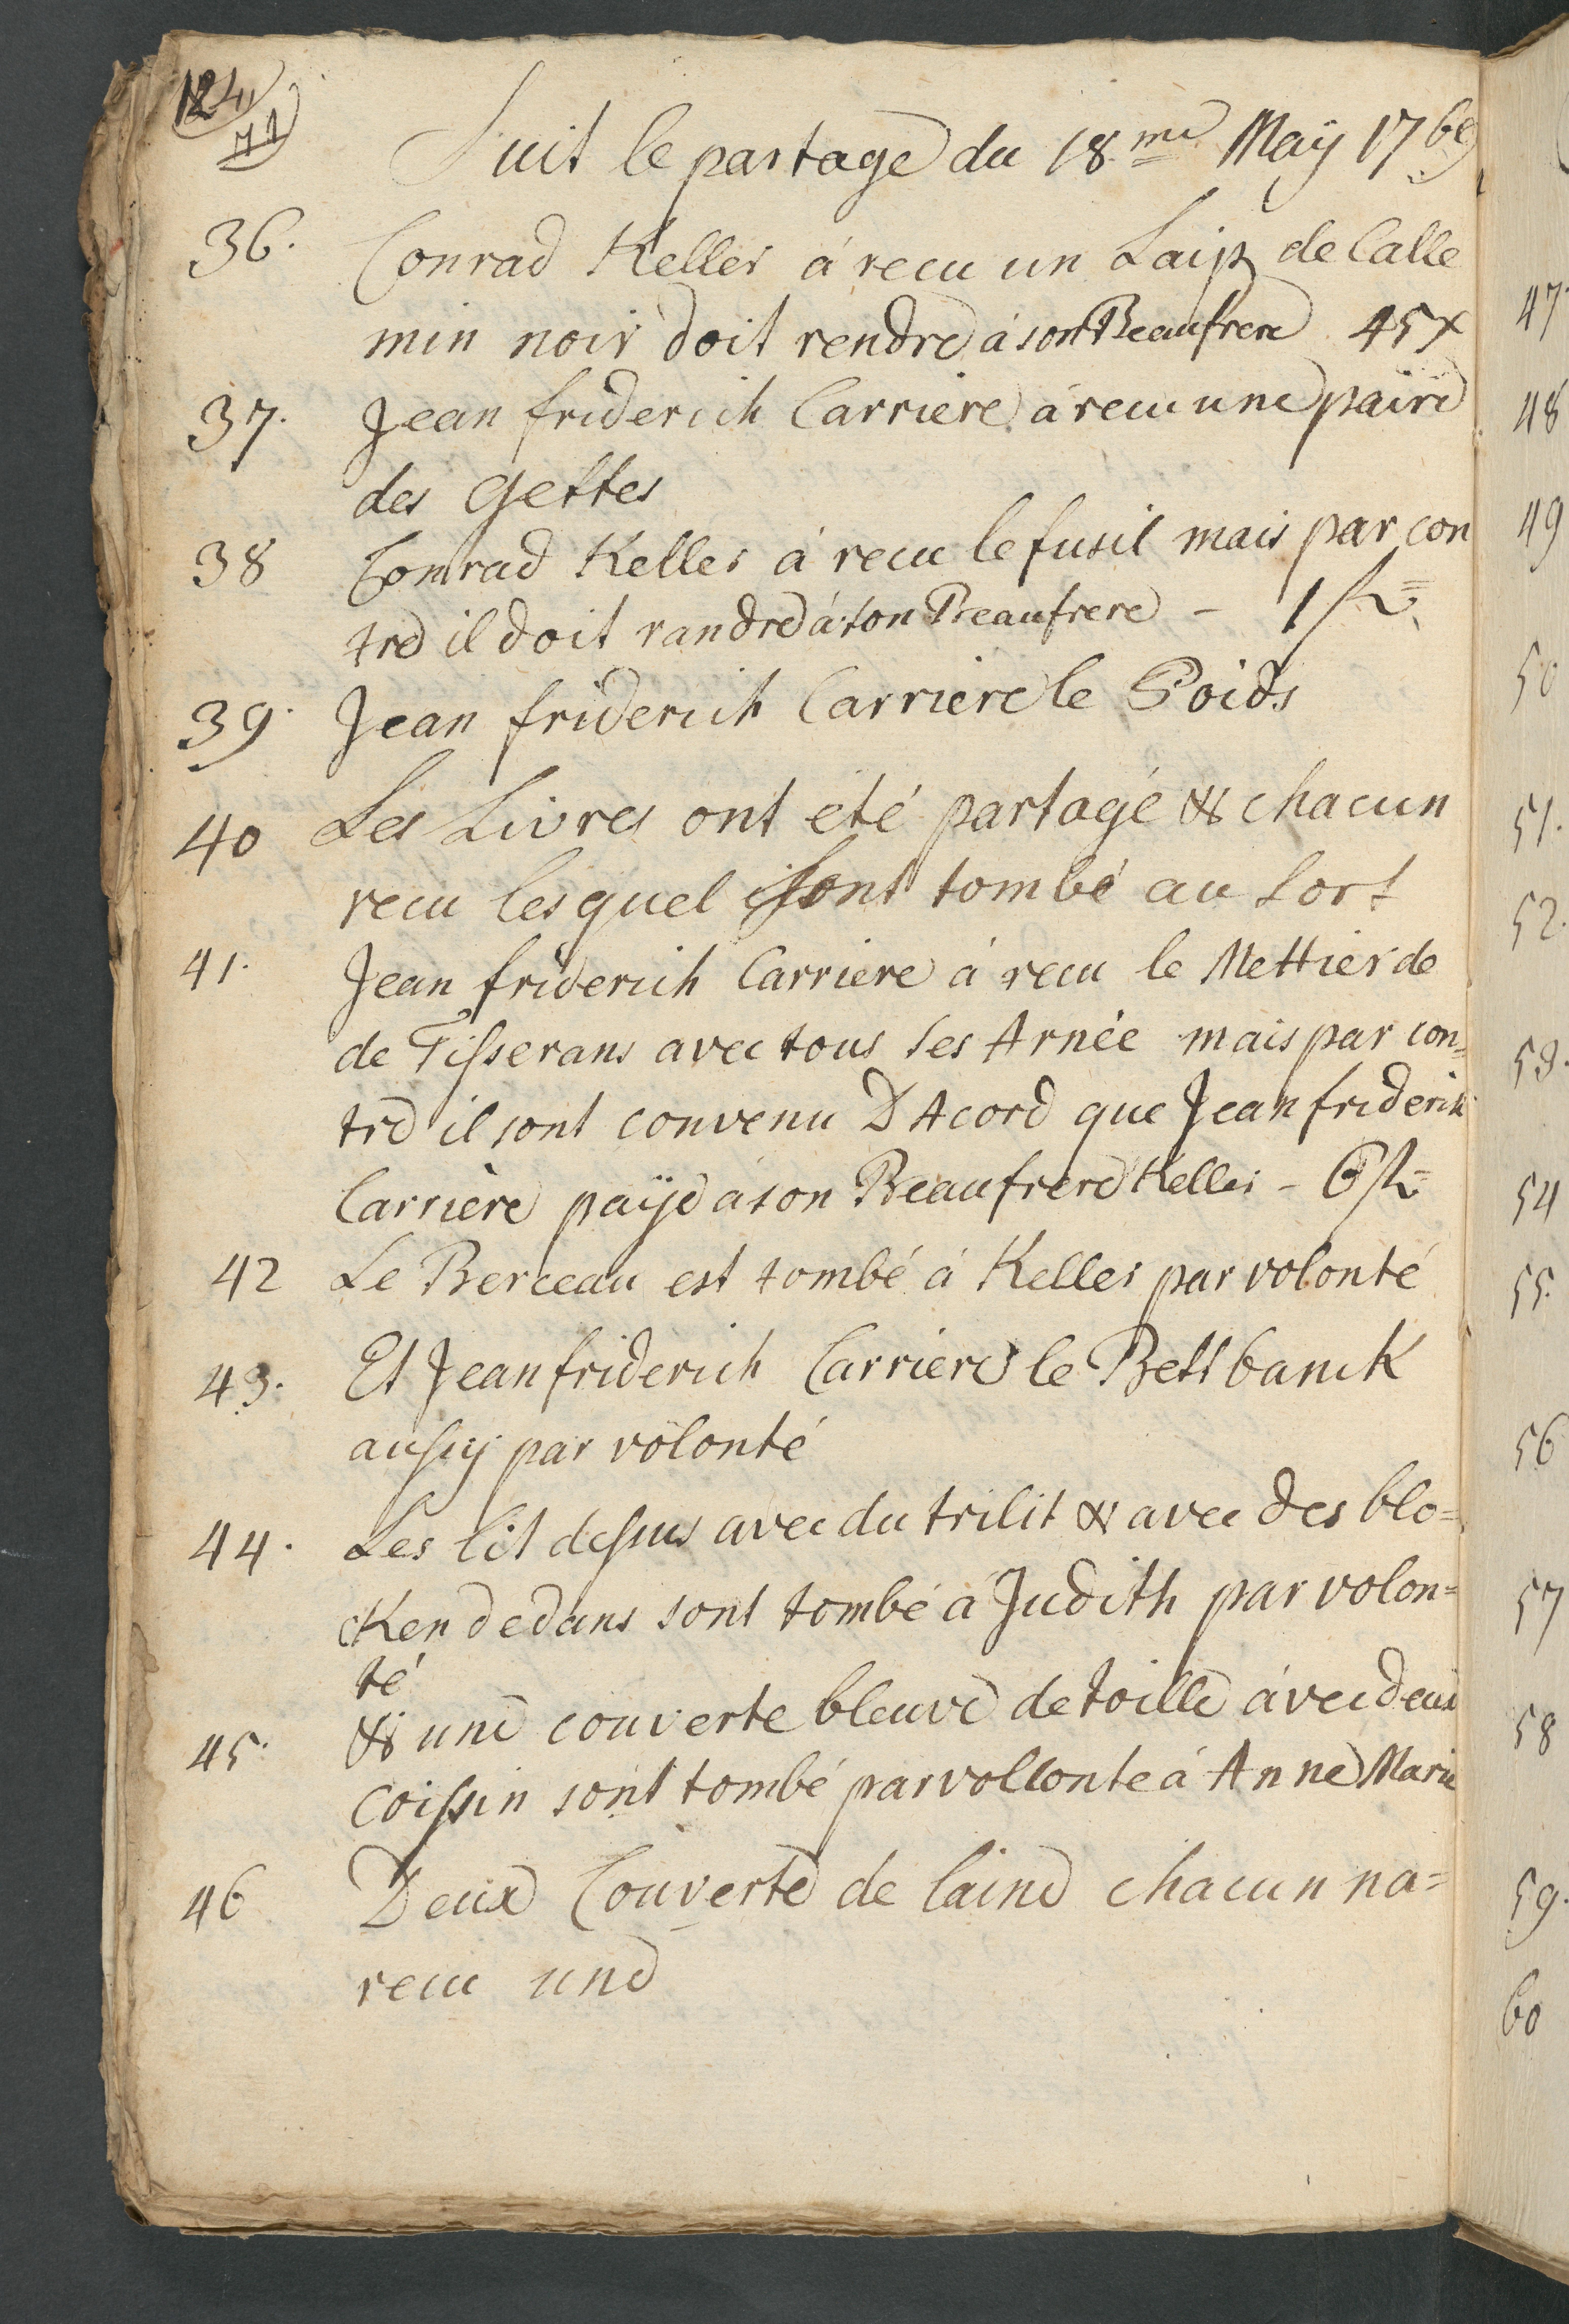 124
71
Suit le partage du 18.me Maÿ 1769
36. Conrad Keller á recu un Laip de Calle
min noir doit rendre á son Beaufrere 45x
37. Jean friderich Carriere á recu une paire
des Gettes
38 Conrad Keller á recu le fusil mais par con
tre il doit randre á son Beaufrere - 1 fl=
39. Jean friderich Carriere le Poids
40 Les Livres ont été partagé & chacun
recu les quel sont tombé au sort
41. Jean friderich Carriere á recu le Mettier de
de Tisserans avec tous ses Arnée mais par con=
tre il sont convenu D Acord que Jean friderich
Carriere paÿe á son Beaufrere Keller - 6 fl=
42 Le Berceau est tombé á Keller par volonté
43. Et Jean friderich Carriere le Bettbanck
aussy par volonté
44. Les lit dessus avec du trilit & avec des blo=
cken dedans sont tombé á Judith par volon=
té
45. & une couverte bleuve de toille ávec deux
Coissin sont tombé par vollonte á Anne Marie
46 Deux Couverte de laine chacun na=
recu une
47.
48
49
50
51.
52.
53.
54
55.
56
57
58
59.
60